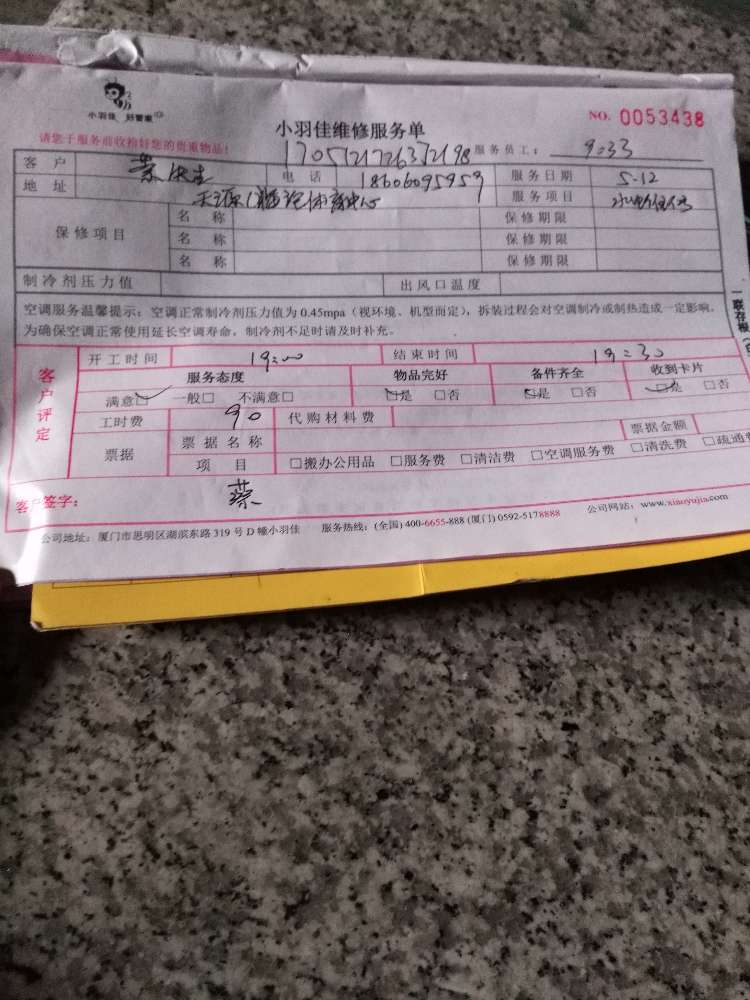 小羽佳 好管家
NO. 0053438
小羽佳维修服务单
请您于服务前收拾好您的贵重物品!
服务员工: 9033
客户 电话 18606095959 服务日期 5-12
地址 服务项目
保修项目 名称 保修期限
名称 保修期限
名称 保修期限
制冷剂压力值 出风口温度
空调服务温馨提示: 空调正常制冷剂压力值为 0.45mpa (视环境、机型而定), 拆装过程会对空调制冷或制热造成一定影响,
为确保空调正常使用延长空调寿命, 制冷剂不足时请及时补充。
一联存根
客户评定
开工时间 19:00 结束时间 19:30
服务态度 物品完好 备件齐全 收到卡片
满意□ 一般□ 不满意□ □是 □否 □是 □否 □是 □否
工时费 90 代购材料费
票据 票据名称 票据金额
项目 □搬办公用品 □服务费 □清洁费 □空调服务费 □清洗费 □疏通费
客户签字: 蔡
公司地址: 厦门市思明区湖滨东路 319 号 D 幢小羽佳 服务热线: (全国) 400-6655-888 (厦门) 0592-5178888 公司网站: www.xiaoyujia.com